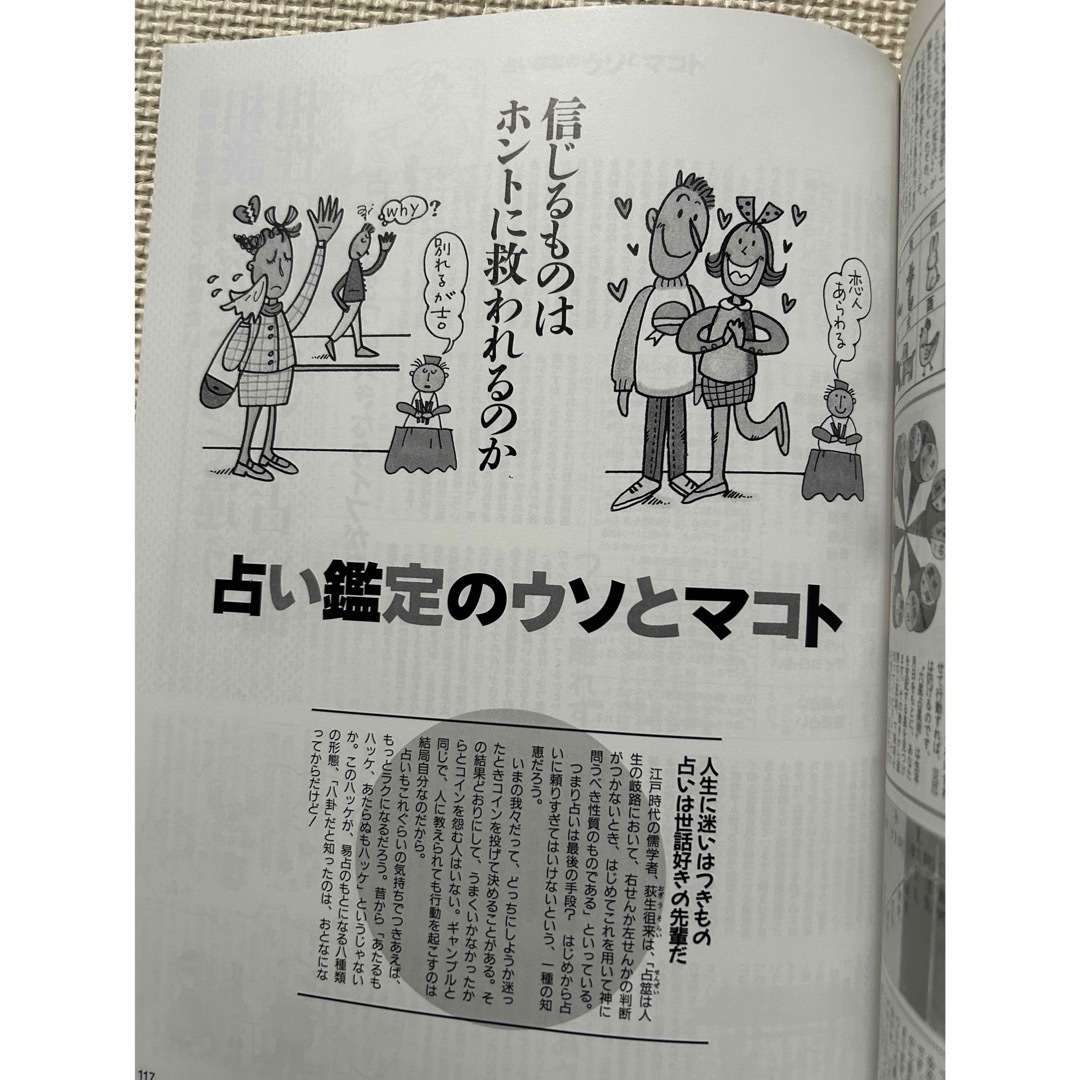 信じるものは
ホントに救われるのか
恋人
あらわる
別れるが
吉。
why?
占い鑑定のウソとマコト
人生に迷いはつきもの
占いは世話好きの先輩だ
江戸時代の儒学者、荻生徂来は、「占筮は人
おぎゅうそらい
せんぜい
生の岐路において、右せんか左せんかの判断
がつかないとき、はじめてこれを用いて神に
問うべき性質のものである」といっている。
つまり占いは最後の手段？　はじめから占
いに頼りすぎてはいけないという、一種の知
恵だろう。
いまの我々だって、どっちにしようか迷っ
たときコインを投げて決めることがある。そ
の結果どおりにして、うまくいかなかったか
らとコインを怨む人はいない。ギャンブルと
同じで、人に教えられても行動を起こすのは
結局自分なのだから。
占いもこれぐらいの気持ちでつきあえば、
もっとラクになるだろう。昔から「あたるも
ハッケ、あたらぬもハッケ」というじゃない
か。このハッケが、易占のもとになる八種類
の形態、「八卦」だと知ったのは、おとなにな
ってからだけど！
117